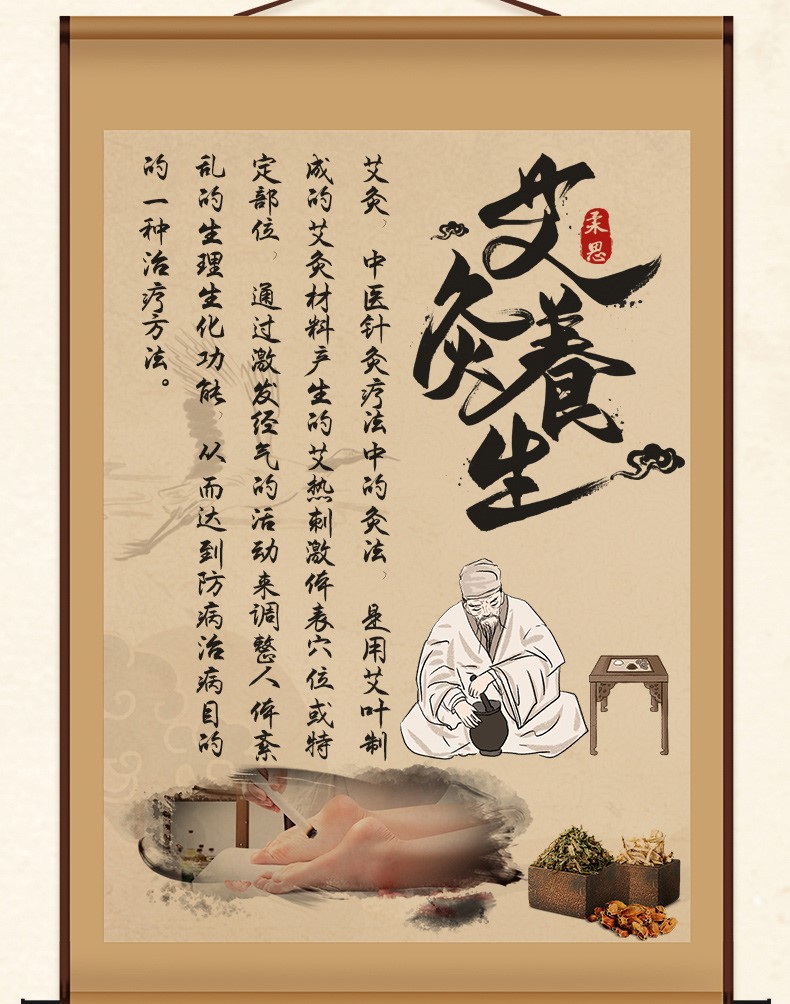 艾灸養生
柔思
艾灸，中医针灸疗法中的灸法，是用艾叶制
成的艾灸材料产生的艾热刺激体表穴位或特
定部位，通过激发经气的活动来调整人体紊
乱的生理生化功能，从而达到防病治病目的
的一种治疗方法。